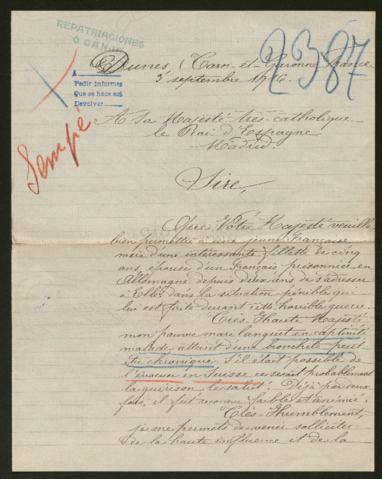 REPATRIACIONES
Ó CANJE
2387
Dunes (Tarn-et-Garonne) France
3 septembre 1916.
A
Pedir informes
Que se hace así
Devolver
Sempé
A Sa Majesté très catholique
le Roi d'Espagne
Madrid.
Sire,
Que Votre Majesté veuille
bien permettre à une jeune Française
mère d'une intéressante fillette de cinq
ans, épouse d'un Français prisonnier en
Allemagne depuis deux ans de s'adresser
à Elle dans la situation pénible qui
lui est faite durant cette horrible guerre.
Très Haute Majesté
mon pauvre mari languit en captivité
malade, atteint d'une bronchite peut
être chronique. S'il était possible de
l'évacuer en Suisse ce serait probablement
la guérison, le salut! Déjà par deux
fois, il fut reconnu faible et anémié.
Très Humblement,
je me permets de venir solliciter
de la haute influence et de la